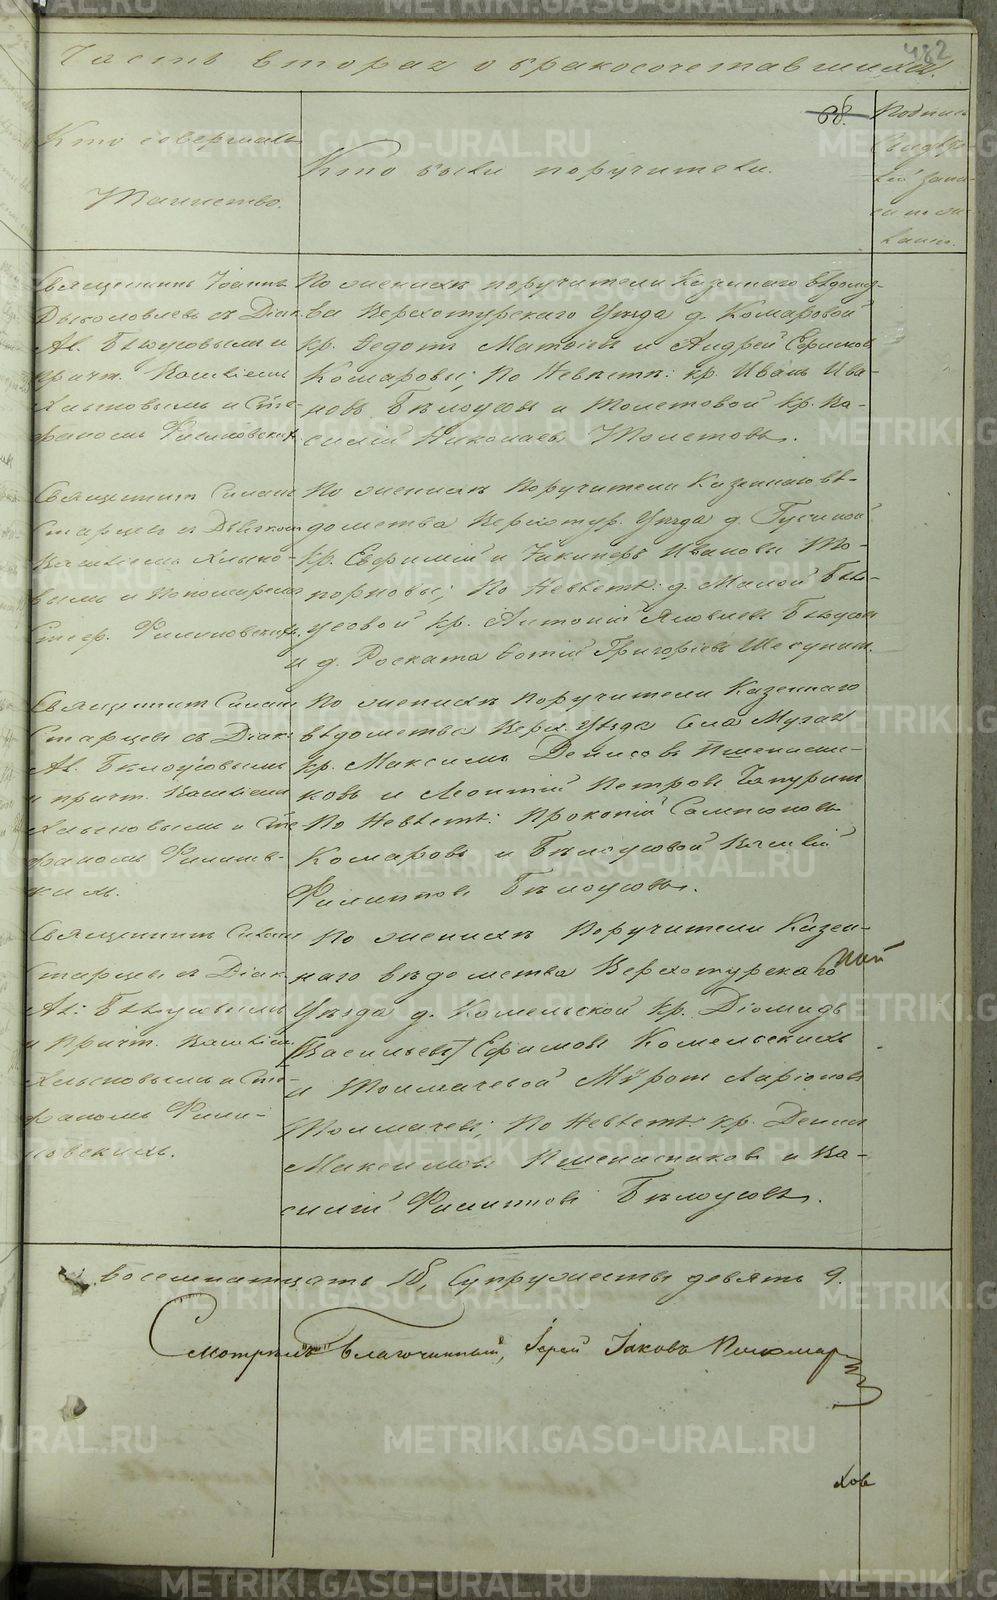 482
Часть вторая о бракосочетавшихся.
68.
Кто совершалъ
Таинство.
Кто были поручители.
Подпись
свидѣте-
лей запи-
си по же-
ланію.
Священникъ Іоаннъ
съ Діак.
Ал. Бѣлоусовымъ и
причт. Василіемъ
Хлыновымъ и Сте-
фаномъ Филиповскимъ.
По женихѣ поручители Казеннаго вѣдомст-
ва Верхотурскаго Уѣзда д. Комаровой
кр. Федотъ и Андрей Ефимовъ
Комаровы; По Невѣстѣ: кр. Иванъ Ива-
новъ Бѣлоусовъ и Толстовой кр. Ва-
силій Николаевъ Толстовъ.
Священникъ Симеонъ
Старцевъ съ Дьячкомъ
Василіемъ Хлыно-
вымъ и Пономаремъ
Стеф. Филиповскимъ.
По женихѣ Поручители Казеннаго вѣ-
домства Верхотур. Уѣзда д. Гусиной
кр. Евфимій и Никифоръ Ивановы То-
порковы; По Невѣстѣ: д. Малой Бѣло-
усовой кр. Антоній Яковлевъ Бѣлоусовъ
и д. Роската Фотій Григорьевъ
Священникъ Симеонъ
Старцевъ съ Діак.
Ал. Бѣлоусовымъ
и причт. Василіемъ
Хлыновымъ и Сте-
фаномъ Филиповс-
кимъ.
По женихѣ Поручители Казеннаго
вѣдомства Верх. Уѣзда Села Мугай
кр. Максимъ Денисовъ Пшенични-
ковъ и Леонтій Петровъ Чапуринъ
По Невѣстѣ: Прокопій Сампсоновъ
Комаровъ и Бѣлоусовой Василій
Филипповъ Бѣлоусовъ.
Священникъ Симеонъ
Старцевъ съ Діак.
Ал: Бѣлоусовымъ
и Причт. Василіемъ
Хлыновымъ и Сте-
фаномъ Фили-
повскимъ.
По женихѣ Поручители Казен-
наго вѣдомства Верхотурскаго
Уѣзда д. Комельской кр. Діомидъ
(Васильевъ) Ефимовъ Комельскихъ
и Толмачевой Миронъ Ларіоновъ
Толмачевъ; По Невѣстѣ: кр. Денисъ
Максимовъ Пшеничниковъ и Ва-
силій Филипповъ Бѣлоусовъ.
восемнатцать 18, Супружествъ девять 9.
Смотрѣлъ Благочинный, Іерей Іаковъ Пономар
ковъ